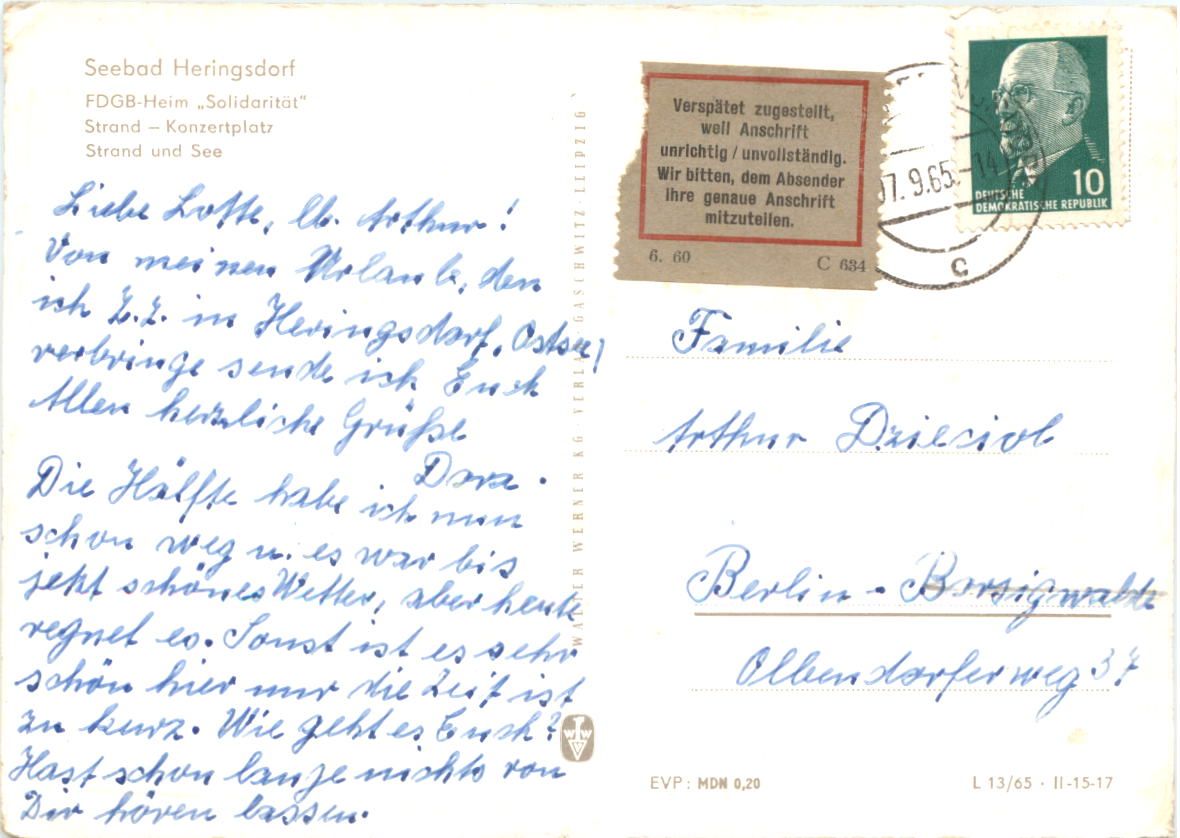 Seebad Heringsdorf
FDGB-Heim „Solidarität"
Strand – Konzertplatz
Strand und See
Liebe Lotte, lb. Arthur!
Von meinen Urlaub, den
ich z.Z. in Heringsdorf, Ostsee,
verbringe sende ich Euch
Allen herzliche Grüße
Dora.
Die Hälfte habe ich nun
schon weg u. es war bis
jetzt schönes Wetter, aber heute
regnet es. Sonst ist es sehr
schön hier nur die Zeit ist
zu kurz. Wie geht es Euch?
Hast schon lange nichts von
Dir hören lassen.
WALTER WERNER KG · VERLAG GASCHWITZ · LEIPZIG
WW
Verspätet zugestellt,
weil Anschrift
unrichtig / unvollständig.
Wir bitten, dem Absender
Ihre genaue Anschrift
mitzuteilen.
6. 60 C 634
07.9.65.-14
c
10
DEUTSCHE
DEMOKRATISCHE REPUBLIK
Familie
Arthur Dzieciol
Berlin - Borsigwalde
Olbendorferweg 37
EVP: MDN 0,20
L 13/65 · II-15-17